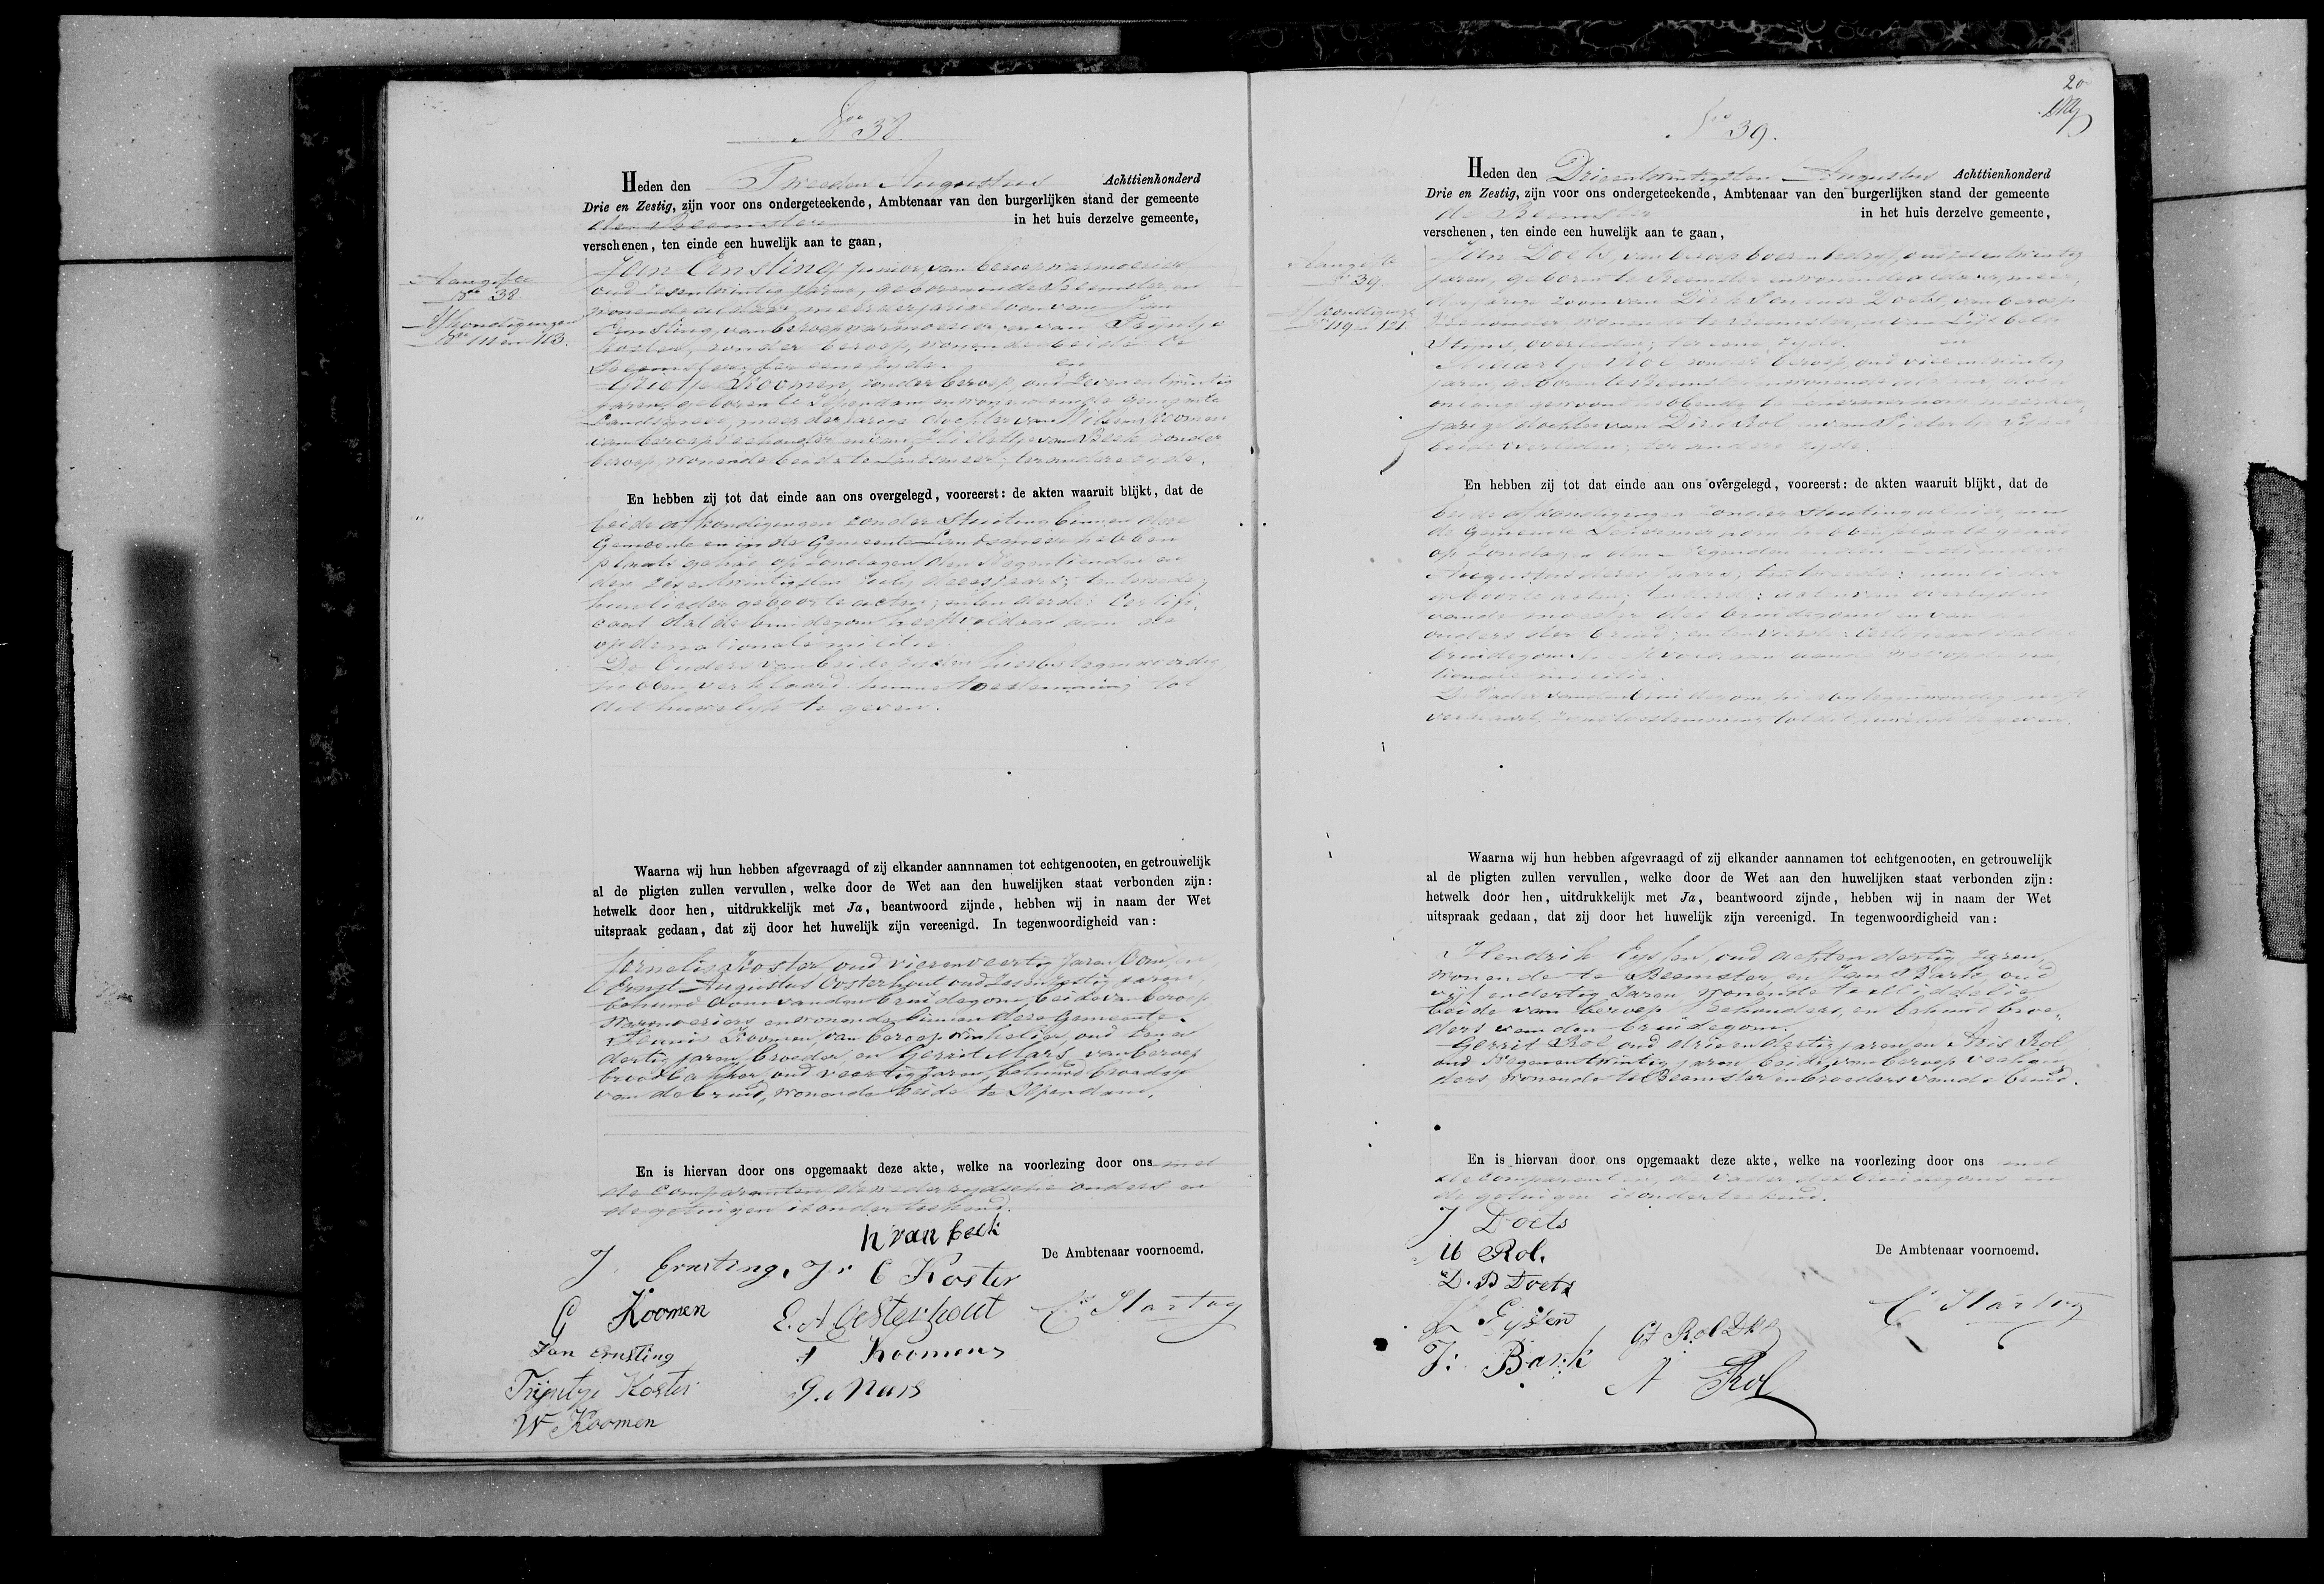 No 38.
Heden den Tweeden Augustus Achttienhonderd
Drie en Zestig, zijn voor ons ondergeteekende, Ambtenaar van den burgerlijken stand der gemeente
de Beemster in het huis derzelve gemeente,
verschenen, ten einde een huwelijk aan te gaan,
Aangifte
No 38.
Afkondigingen
No 111 en 113.
Jan Ernsting junior, van beroep warmoesier
oud zesentwintig jaren, geboren in de Beemster, en
wonende aldaar, meerderjarige zoon van Jan
Ernsting, van beroep warmoesier, en van Trijntje
Koster, zonder beroep, wonende beide
Beemster, ter eenre zyde. en
Grietje Koomen, zonder beroep, oud zevenentwintig
jaren, geboren te Ilpendam, en wonende in de gemeente
Landsmeer, meerderjarige dochter van Willem Koomen
van beroep veehouder en van van Beek zonder
beroep, wonende beide te Landsmeer, ter andere zyde.
En hebben zij tot dat einde aan ons overgelegd, vooreerst: de akten waaruit blijkt, dat de
beide afkondigingen zonder stuiting binnen deze
Gemeente en in de Gemeente Landsmeer hebben
plaats gehad op Zondagen den Negentienden en
den zesentwintigsten July dezes jaars; ten tweede;
hunlieder geboorte acten; en ten derde: Certifi-
caat dat de bruidegom heeft voldaan aan de
op de nationale militie.
De Ouders van beide zyden hierbij tegenwoordig
hebben verklaard hunne toestemming tot
dit huwelyk te geven.
Waarna wij hun hebben afgevraagd of zij elkander aannnamen tot echtgenooten, en getrouwelijk
al de pligten zullen vervullen, welke door de Wet aan den huwelijken staat verbonden zijn:
hetwelk door hen, uitdrukkelijk met Ja, beantwoord zijnde, hebben wij in naam der Wet
uitspraak gedaan, dat zij door het huwelijk zijn vereenigd. In tegenwoordigheid van:
Cornelis Koster, oud vierenveertig jaren Oom, en
Ernst Augustus Oosterhout, oud zesenvestig jaren,
behuwd Oom van den bruidegom, beide van beroep
Warmoesiers, en wonende binnen deze Gemeente.
Teunis Koomen, van beroep winkelier, oud een en
dertig jaren, broeder, en Gerrit Mars, van beroep
broodbakker, oud veertig jaren, behuwd broeder
van de bruid, wonende beide te Ilpendam.
En is hiervan door ons opgemaakt deze akte, welke na voorlezing door ons met
de Comparanten, de wederzydsche ouders en
de getuigen is onderteekend.
H van Beek
De Ambtenaar voornoemd.
J. Ernsting. Jr C Koster
G Koomen E. A Oosterhout Cs Hartog
Jan Ernsting T Koomen
Trijntje Koster G. Mars
W Koomen
20
No 39.
Heden den Drieentwintigsten Augustus Achttienhonderd
Drie en Zestig, zijn voor ons ondergeteekende, Ambtenaar van den burgerlijken stand der gemeente
de Beemster in het huis derzelve gemeente,
verschenen, ten einde een huwelijk aan te gaan,
Aangifte
No 39.
Afkondigingen
No 119 en 121.
Jan Doets, van beroep boerenbedryf, oud
jaren, geboren te Beemster en wonende aldaar, meer-
derjarige zoon van Dirk Doets, van beroep
wonende te Beemster, en van Lijsbeth
overleden; ter eenre zyde. en
Maartje Rol zonder beroep, oud vierentwintig
jaren, geboren te Beemster en wonende aldaar, doch
onlangs gewoond hebbende te meerder-
jarige dochter van Dirk Rol en van Pietertje
beide overleden; ter andere zyde.
En hebben zij tot dat einde aan ons overgelegd, vooreerst: de akten waaruit blijkt, dat de
beide afkondigingen zonder stuiting
de Gemeente hebben plaats gehad
op Zondagen den Negenden en den Zestienden
Augustus dezes jaars; ten tweede: hunlieder
geboorte acten; ten derde: acten van overlyden
van de moeder des bruidegoms en van de
ouders der bruid; en ten vierde: Certificaat dat de
bruidegom heeft voldaan aan de op de na-
tionale militie.
De Vader van den bruidegom hierby tegenwoordig heeft
verklaard, zyne toestemming tot dit huwelyk te geven.
Waarna wij hun hebben afgevraagd of zij elkander aannamen tot echtgenooten, en getrouwelijk
al de pligten zullen vervullen, welke door de Wet aan den huwelijken staat verbonden zijn:
hetwelk door hen, uitdrukkelijk met Ja, beantwoord zijnde, hebben wij in naam der Wet
uitspraak gedaan, dat zij door het huwelijk zijn vereenigd. In tegenwoordigheid van:
Hendrik Eyssen, oud achtendertig jaren,
wonende te Beemster, en Jan Bark, oud
vijfendertig jaren, wonende te Middelie
beide van beroep veehouders, en behuwd broe-
ders van den bruidegom.
Gerrit Rol oud drieendertig jaren, en Aris Rol
oud Negenentwintig jaren beide van beroep veehou-
ders wonende te Beemster en broeders van de bruid.
En is hiervan door ons opgemaakt deze akte, welke na voorlezing door ons met
de Comparanten, de vader des bruidegoms en
de getuigen is onderteekend.
J Doets
M Rol. De Ambtenaar voornoemd.
D. B Doets
H Eyssen Gt Rol Dkz Cs Hartog
J: Bark A Rol